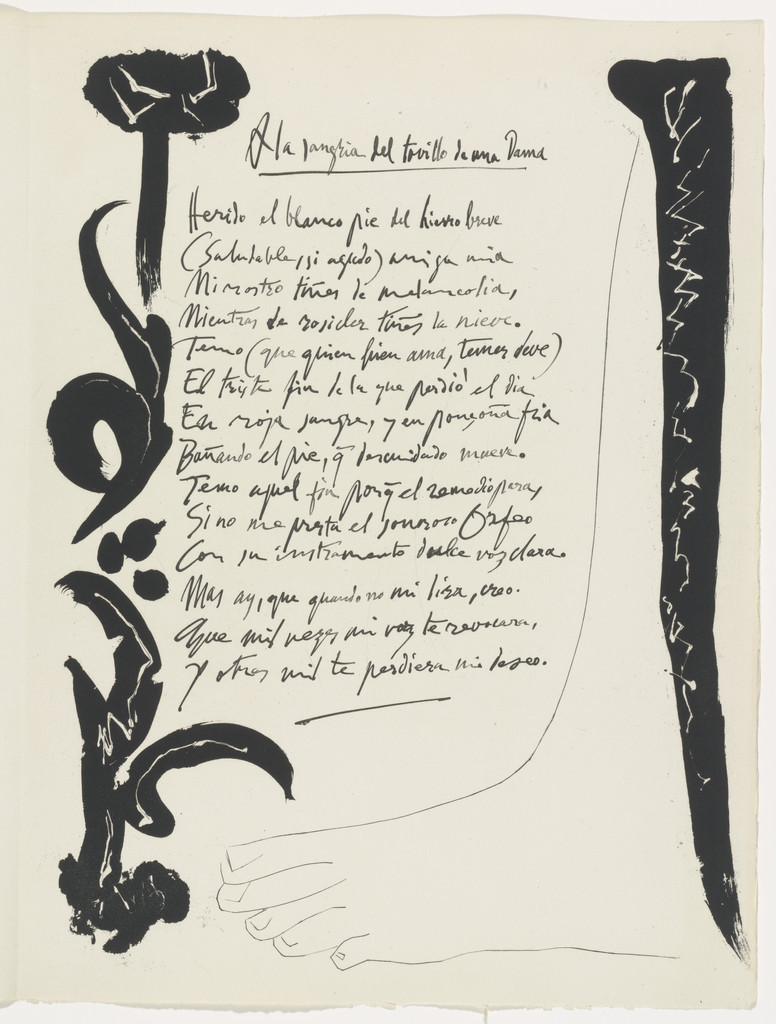 A la sangria del tovillo de una Dama
Herido el blanco pie del hierro breve
(Saludable, si agudo) amiga mia
Mi rostro tiñes de melancolia,
Mientras de rosicler tiñes la nieve.
Temo (que quien bien ama, temer deve)
El triste fin de la que perdió el dia
En roja sangre, y en ponçoña fria
Bañando el pie, q̃ descuidado mueve.
Temo aquel fin porq̃ el remedio para,
Si no me presta el sonoroso Orfeo
Con su instrumento dulce voz clara.
Mas ay, que quando no mi lira, creo.
Que mil veçes mi voz te revocara,
Y otras mil te perdiera mi deseo.